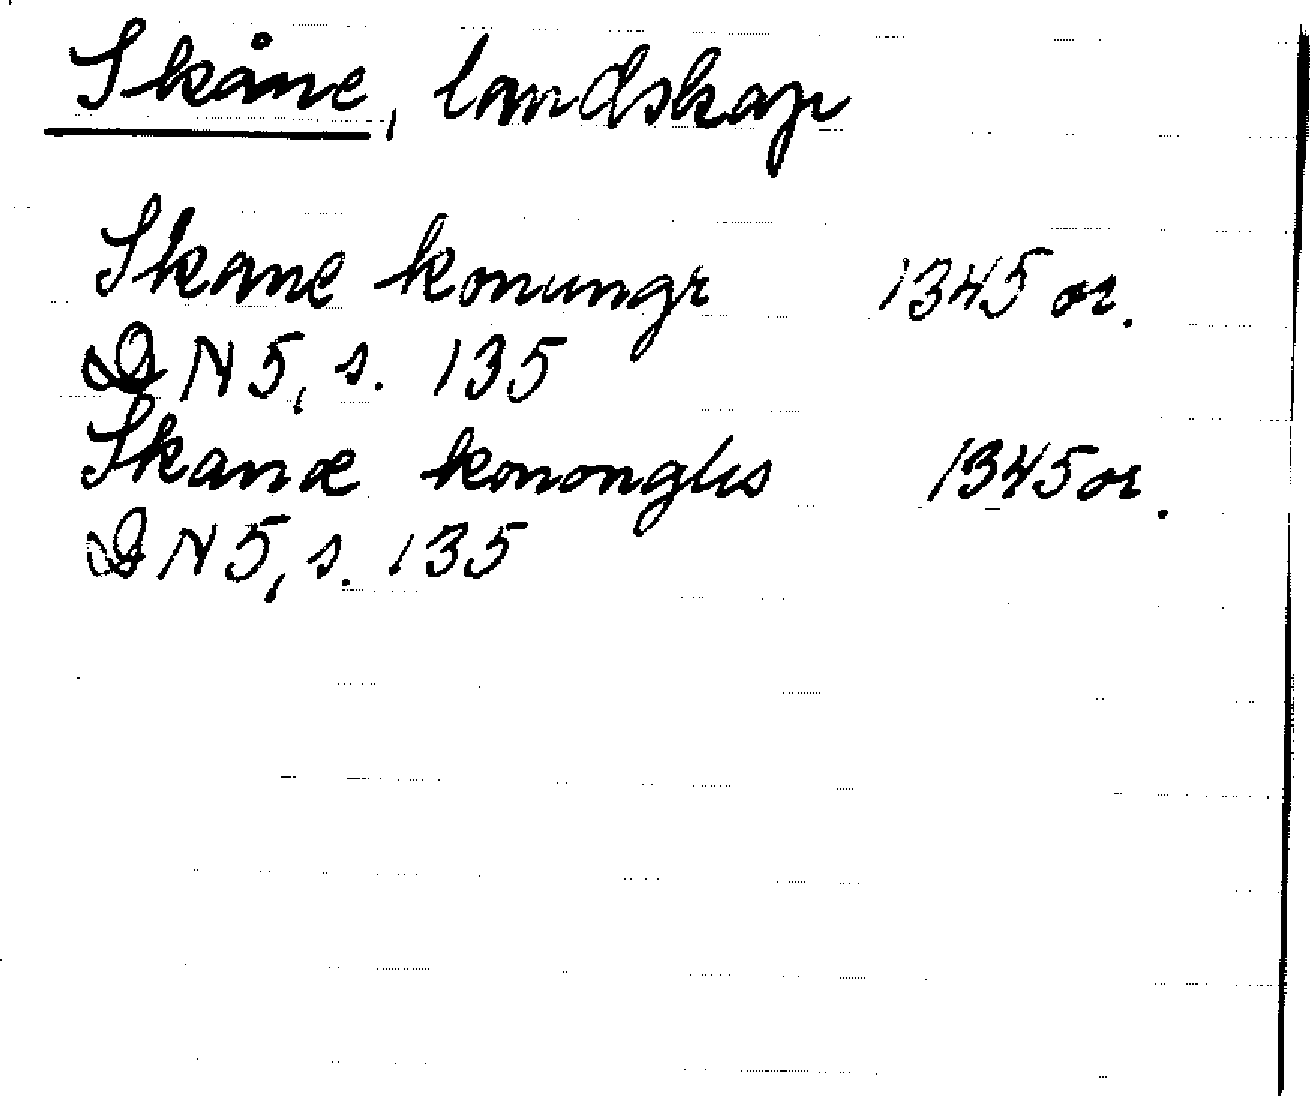 Skåne, landskap
Skane konungr 1345 or.
DN 5, s. 135
Skanæ kononghs 1345 or.
DN 5, s. 135